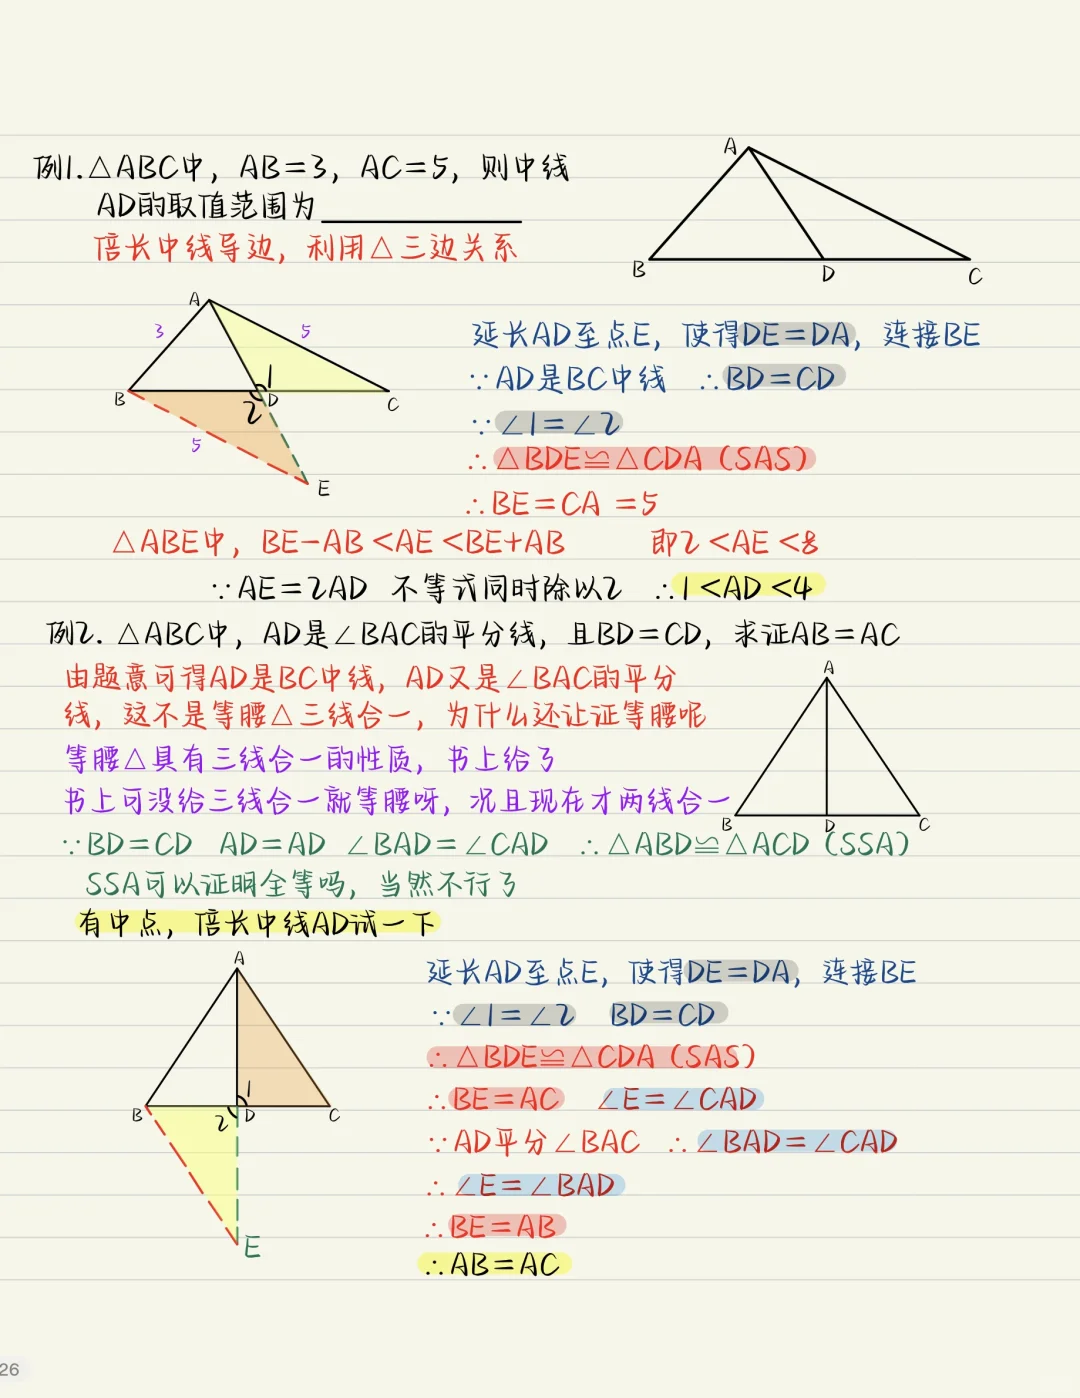 例1.△ABC中，AB=3，AC=5，则中线
AD的取值范围为
倍长中线导边，利用△三边关系
A
B
D
C
A
3
5
B
1
2
D
C
5
E
延长AD至点E，使得DE=DA，连接BE
∵AD是BC中线 ∴BD=CD
∵∠1=∠2
∴△BDE≌△CDA（SAS）
∴BE=CA=5
△ABE中，BE-AB<AE<BE+AB 即2<AE<8
∵AE=2AD 不等式同时除以2 ∴1<AD<4
例2. △ABC中，AD是∠BAC的平分线，且BD=CD，求证AB=AC
由题意可得AD是BC中线，AD又是∠BAC的平分
线，这不是等腰△三线合一，为什么还让证等腰呢
等腰△具有三线合一的性质，书上给了
书上可没给三线合一就等腰呀，况且现在才两线合一
A
B
D
C
∵BD=CD AD=AD ∠BAD=∠CAD ∴△ABD≌△ACD（SSA）
SSA可以证明全等吗，当然不行了
有中点，倍长中线AD试一下
A
B
1
2
D
C
E
延长AD至点E，使得DE=DA，连接BE
∵∠1=∠2 BD=CD
∴△BDE≌△CDA（SAS）
∴BE=AC ∠E=∠CAD
∵AD平分∠BAC ∴∠BAD=∠CAD
∴∠E=∠BAD
∴BE=AB
∴AB=AC
26